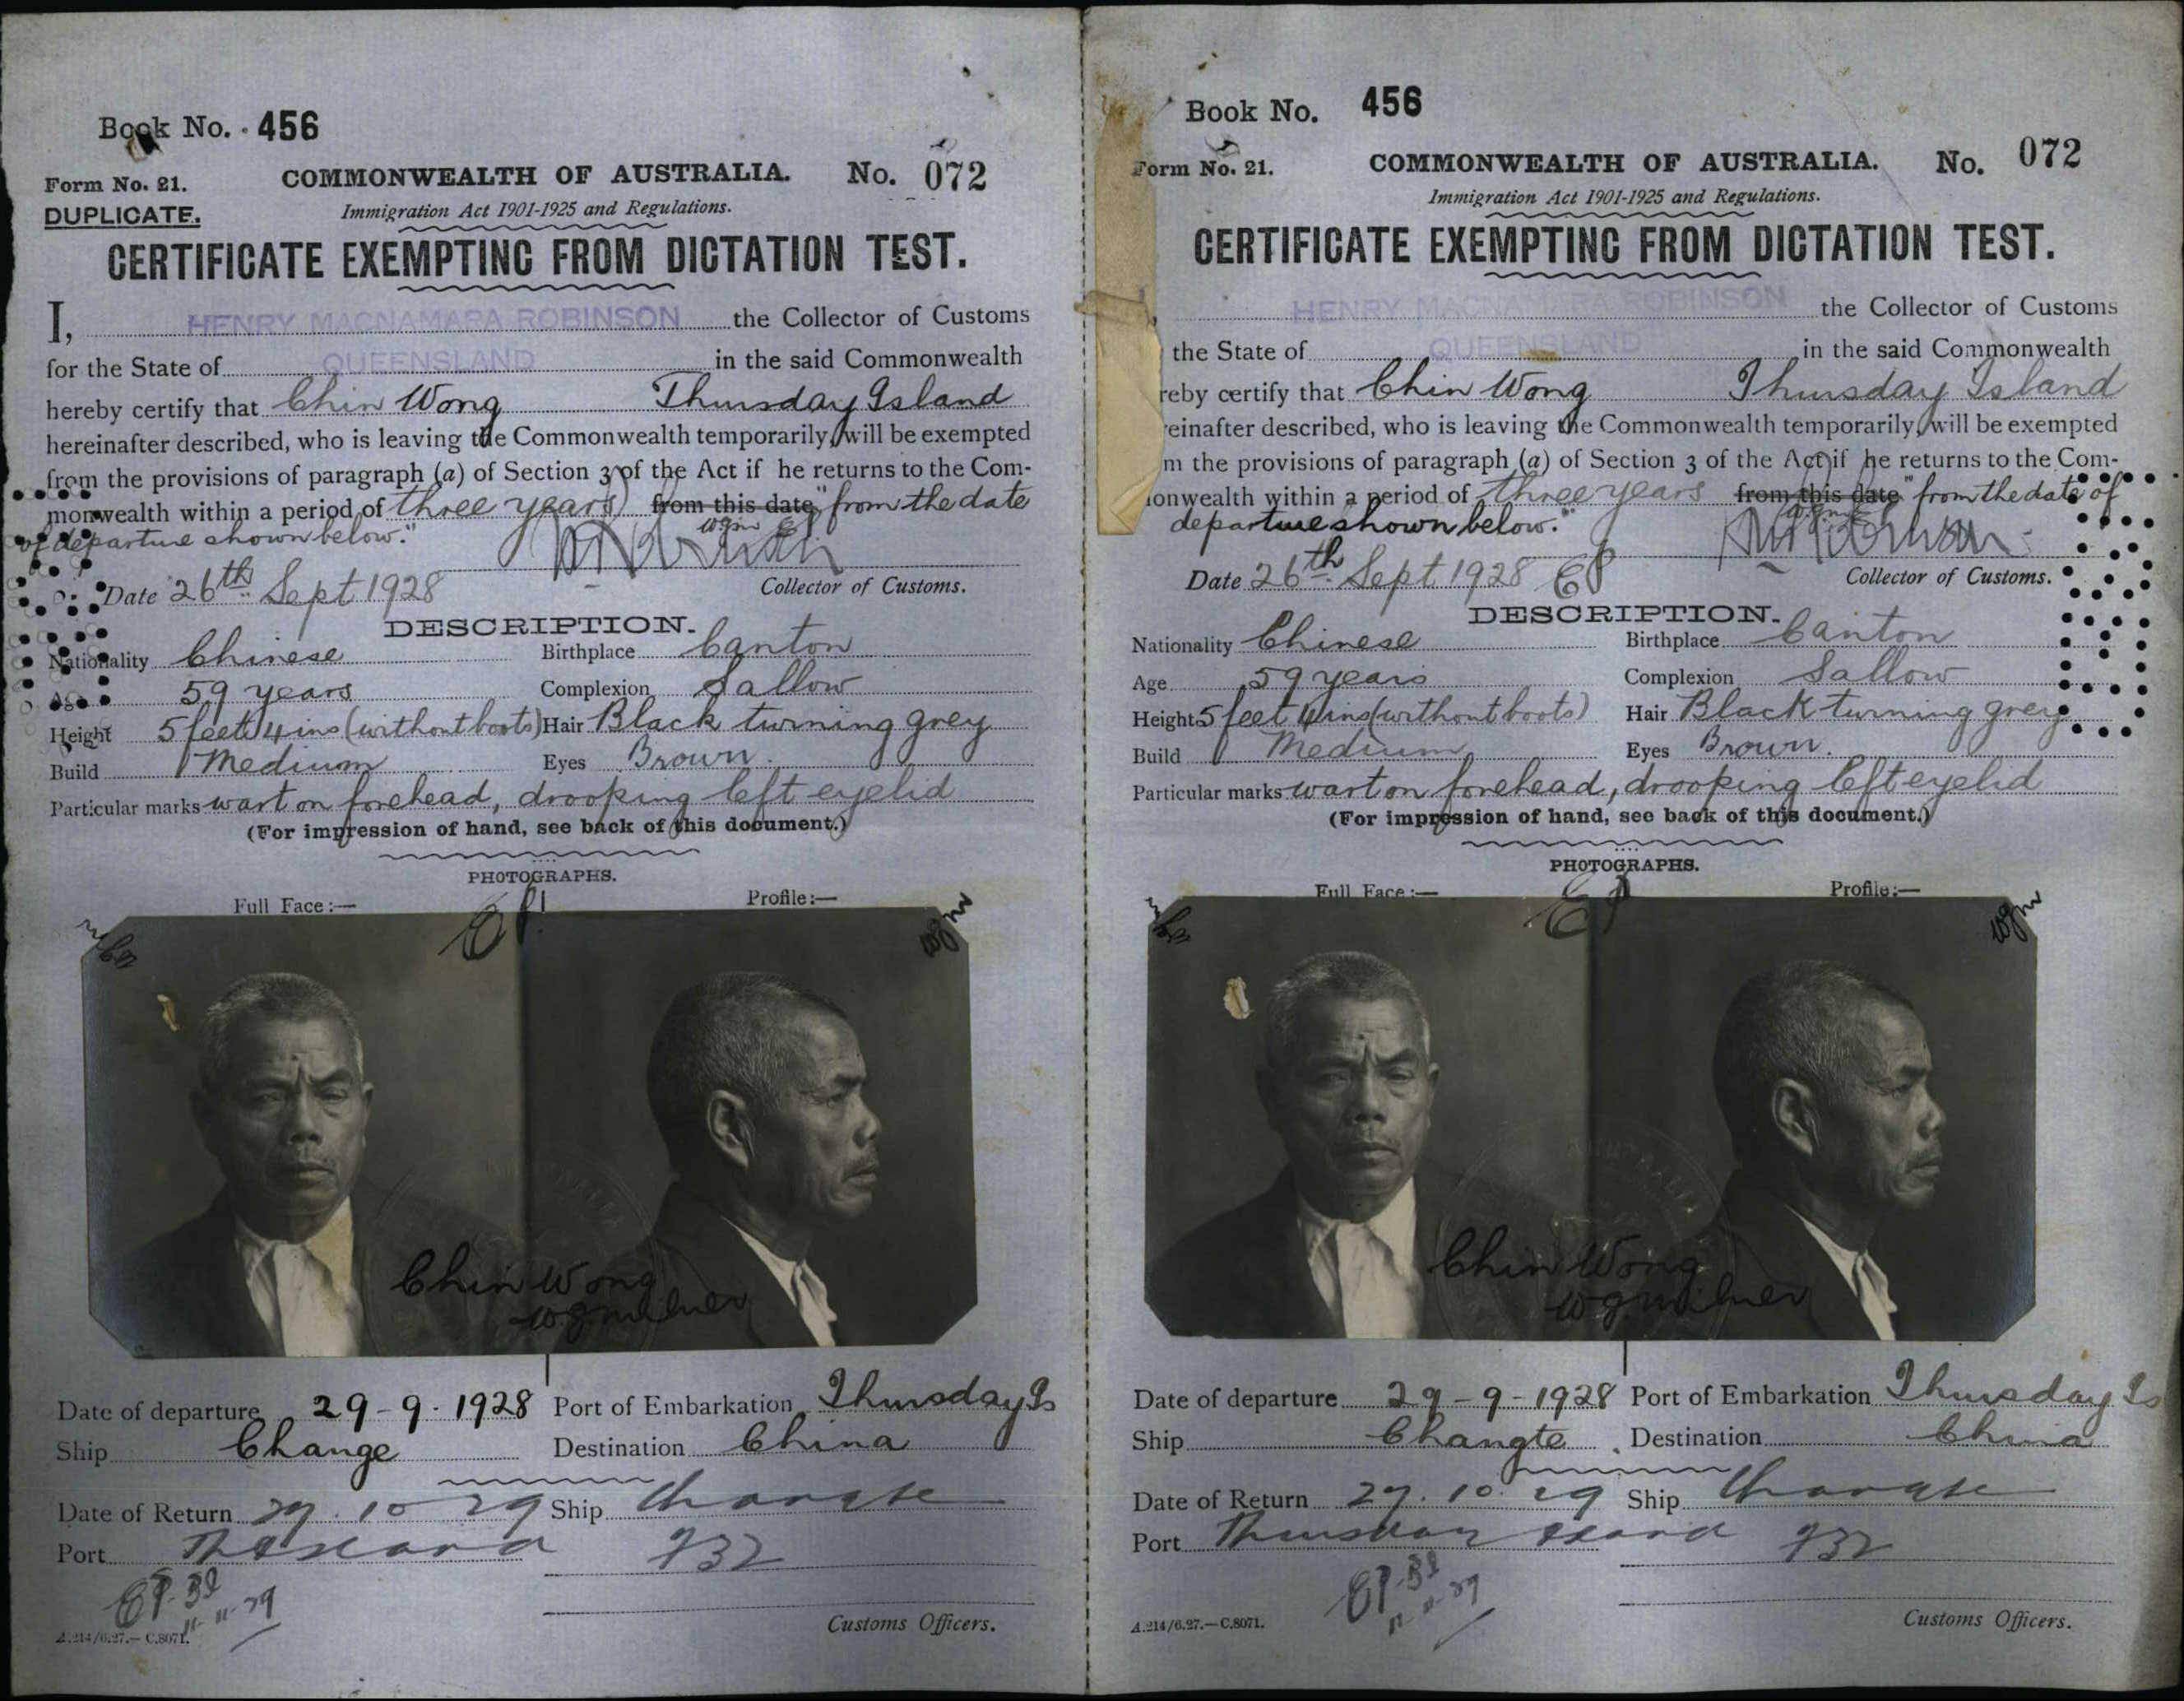 Book No. 456
Form No. 21.
COMMONWEALTH OF AUSTRALIA. No. 072
DUPLICATE.
Immigration Act 1901-1925 and Regulations.
CERTIFICATE EXEMPTING FROM DICTATION TEST.
I, HENRY MACNAMARA ROBINSON the Collector of Customs
for the State of QUEENSLAND in the said Commonwealth
hereby certify that Chin Wong Thursday Island
hereinafter described, who is leaving the Commonwealth temporarily, will be exempted
from the provisions of paragraph (a) of Section 3 of the Act if he returns to the Com-
monwealth within a period of three years from this date "from the date
of departure shown below."
wgm EP
Date 26th Sept 1928
Collector of Customs.
DESCRIPTION.
Nationality Chinese Birthplace Canton
Age 59 years Complexion Sallow
Height 5 feet 4 ins (without boots) Hair Black turning grey
Build Medium Eyes Brown.
Particular marks wart on forehead, drooping left eyelid
(For impression of hand, see back of this document.)
PHOTOGRAPHS.
Full Face:— EP Profile:—
wgm
Chin Wong
W G Milner
Date of departure 29-9-1928 Port of Embarkation Thursday Is
Ship Change Destination China
Date of Return 29.10.29 Ship Changte
Port Th Island 732
EP
11-11-29
Customs Officers.
A.214/6.27.—C.8071.
Book No. 456
Form No. 21.
COMMONWEALTH OF AUSTRALIA. No. 072
Immigration Act 1901-1925 and Regulations.
CERTIFICATE EXEMPTING FROM DICTATION TEST.
HENRY MACNAMARA ROBINSON the Collector of Customs
the State of QUEENSLAND in the said Commonwealth
reby certify that Chin Wong Thursday Island
reinafter described, who is leaving the Commonwealth temporarily, will be exempted
m the provisions of paragraph (a) of Section 3 of the Act if he returns to the Com-
onwealth within a period of three years from this date "from the date of
departure shown below."
Date 26th Sept 1928 EP
Collector of Customs.
DESCRIPTION.
Nationality Chinese Birthplace Canton
Age 59 years Complexion Sallow
Height 5 feet 4 ins (without boots) Hair Black turning grey
Build Medium Eyes Brown.
Particular marks wart on forehead, drooping left eyelid
(For impression of hand, see back of this document.)
PHOTOGRAPHS.
Full Face:— EP Profile:—
wgm
Chin Wong
W G Milner
Date of departure 29-9-1928 Port of Embarkation Thursday Is
Ship Changte Destination China
Date of Return 29.10.29 Ship Changte
Port Thursday Island 732
EP
11-11-29
Customs Officers.
A.214/6.27.—C.8071.